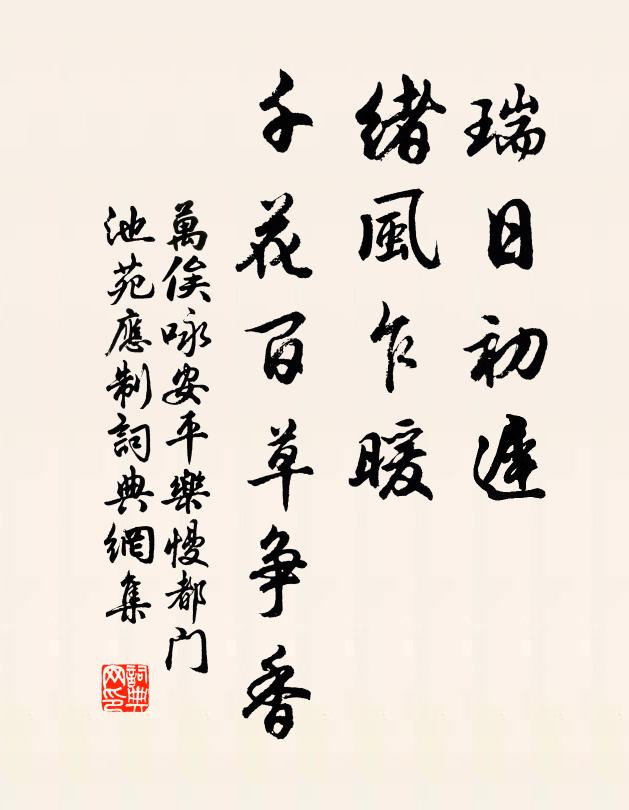 瑞日初遲
緒風乍暖
千花百草争香
萬俟咏安平樂慢都门
池苑應制詞典網集
詞典
网印